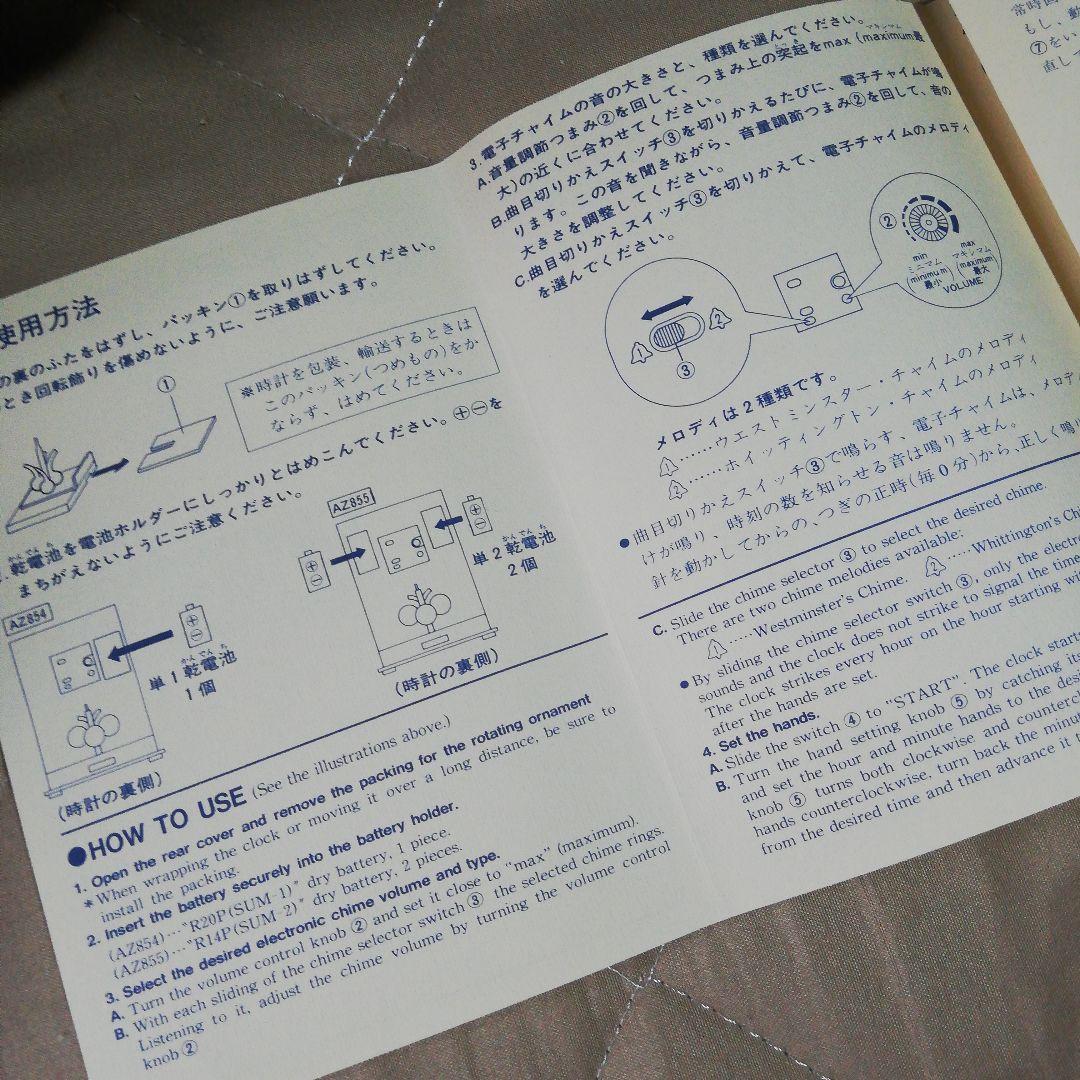 使用方法
の裏のふたをはずし、パッキン①を取りはずしてください。
とき回転飾りを傷めないように、ご注意願います。
①
※時計を包装、輸送するときは
このパッキン(つめもの)をか
ならず、はめてください。
乾電池を電池ホルダーにしっかりとはめこんでください。⊕⊖を
かんでんち
まちがえないようにご注意ください。
AZ854
単1乾電池
かんでんち
1個
(時計の裏側)
AZ855
単2乾電池
かんでんち
2個
(時計の裏側)
●HOW TO USE (See the illustrations above.)
1. Open the rear cover and remove the packing for the rotating ornament
* When wrapping the clock or moving it over a long distance, be sure to
install the packing.
2. Insert the battery securely into the battery holder.
(AZ854)…"R20P(SUM-1)" dry battery, 1 piece.
(AZ855)…"R14P(SUM-2)" dry battery, 2 pieces.
3. Select the desired electronic chime volume and type.
A. Turn the volume control knob ② and set it close to "max" (maximum).
B. With each sliding of the chime selector switch ③ the selected chime rings.
Listening to it, adjust the chime volume by turning the volume control
knob ②
3. 電子チャイムの音の大きさと、種類を選んでください。
A. 音量調節つまみ②を回して、つまみ上の突起をmax (maximum最
とっき
マキシマム
大)の近くに合わせてください。
B. 曲目切りかえスイッチ③を切りかえるたびに、電子チャイムが鳴
ります。この音を聞きながら、音量調節つまみ②を回して、音の
大きさを調整してください。
C. 曲目切りかえスイッチ③を切りかえて、電子チャイムのメロディ
を選んでください。
1
2
③
②
min
ミニマム
(minimum
最小)
max
マキシマム
(maximum
最大)
VOLUME
メロディは2種類です。
1……ウエストミンスター・チャイムのメロディ
2……ホイッティングトン・チャイムのメロディ
● 曲目切りかえスイッチ③で鳴らす、電子チャイムは、メロデ
けが鳴り、時刻の数を知らせる音は鳴りません。
針を動かしてからの、つぎの正時(毎0分)から、正しく鳴り
C. Slide the chime selector ③ to select the desired chime.
There are two chime melodies available:
1……Westminster's Chime. 2……Whittington's Chi
● By sliding the chime selector switch ③, only the electro
sounds and the clock does not strike to signal the time
The clock strikes every hour on the hour starting wi
after the hands are set.
4. Set the hands.
A. Slide the switch ④ to "START". The clock starts
B. Turn the hand setting knob ⑤ by catching its
and set the hour and minute hands to the desi
knob ⑤ turns both clockwise and countercl
hands counterclockwise, turn back the minut
from the desired time and then advance it t
常時回
もし、動
⑦をい
直して